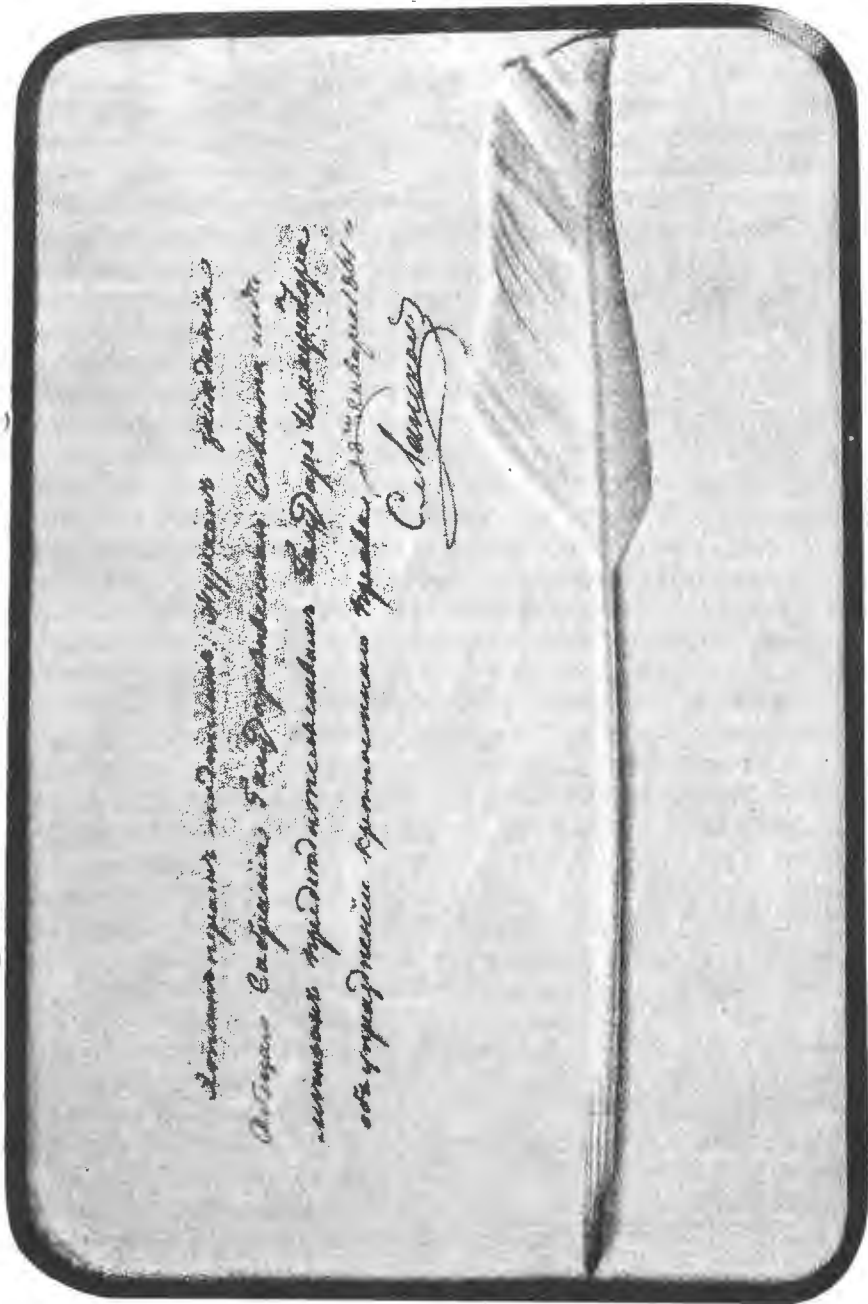 Этимъ перомъ подписанъ Журналъ засѣданія
Общаго Собранія Государственнаго Совѣта подъ
личнымъ предсѣдательствомъ Государя Императора
объ упраздненіи крѣпостнаго права, 28го Января 1861
С. Ланской